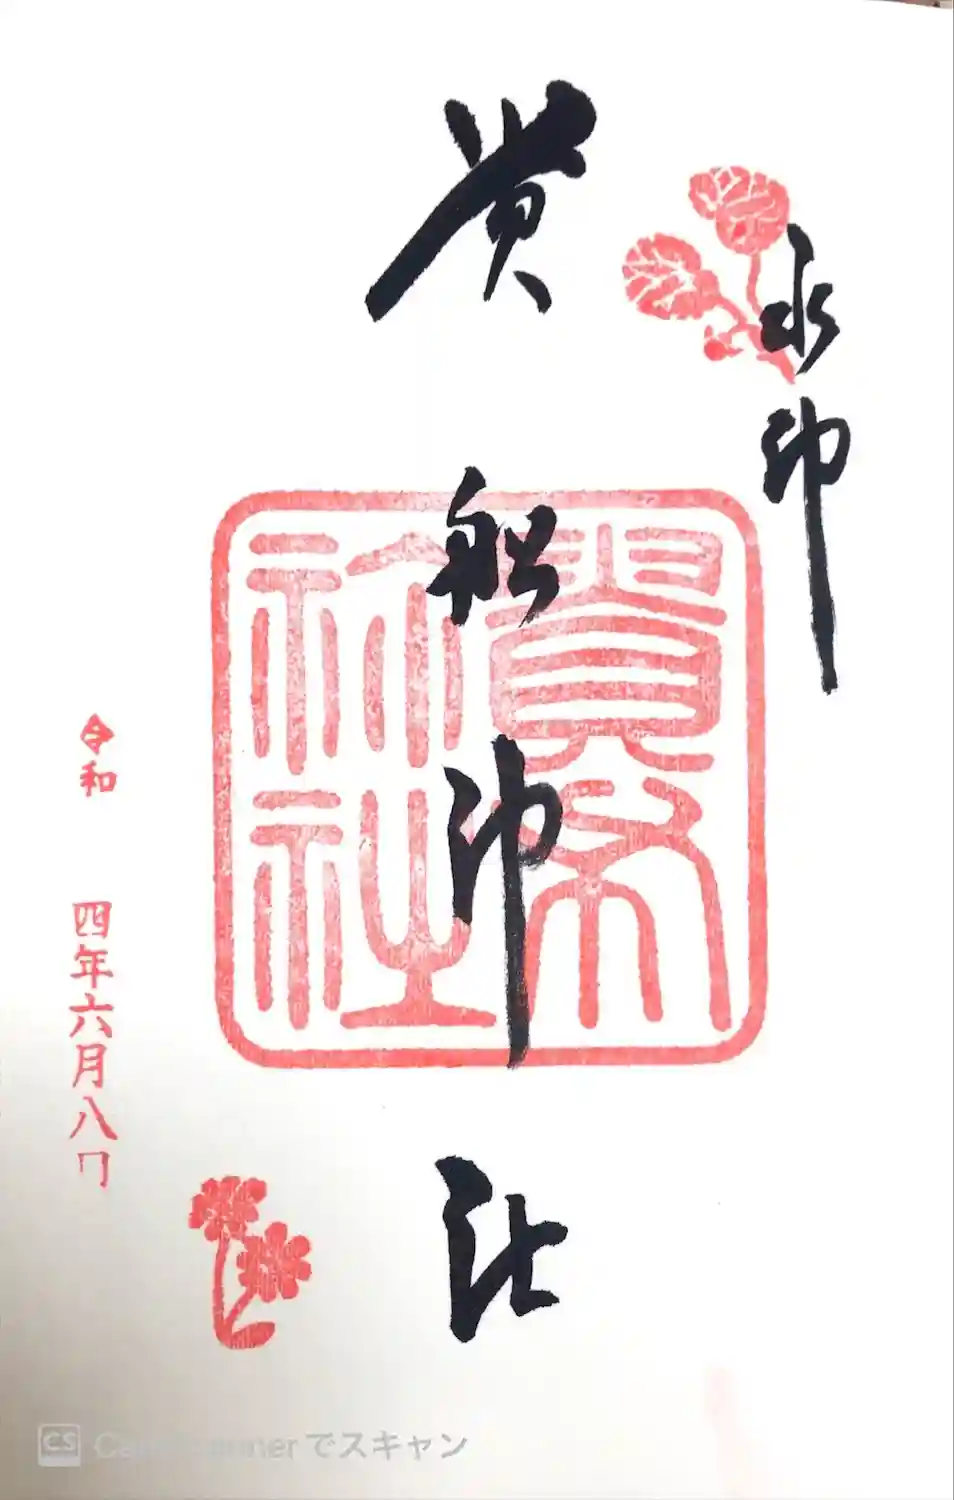 水神
貴船神社
令和 四年六月八日
CS CamScannerでスキャン